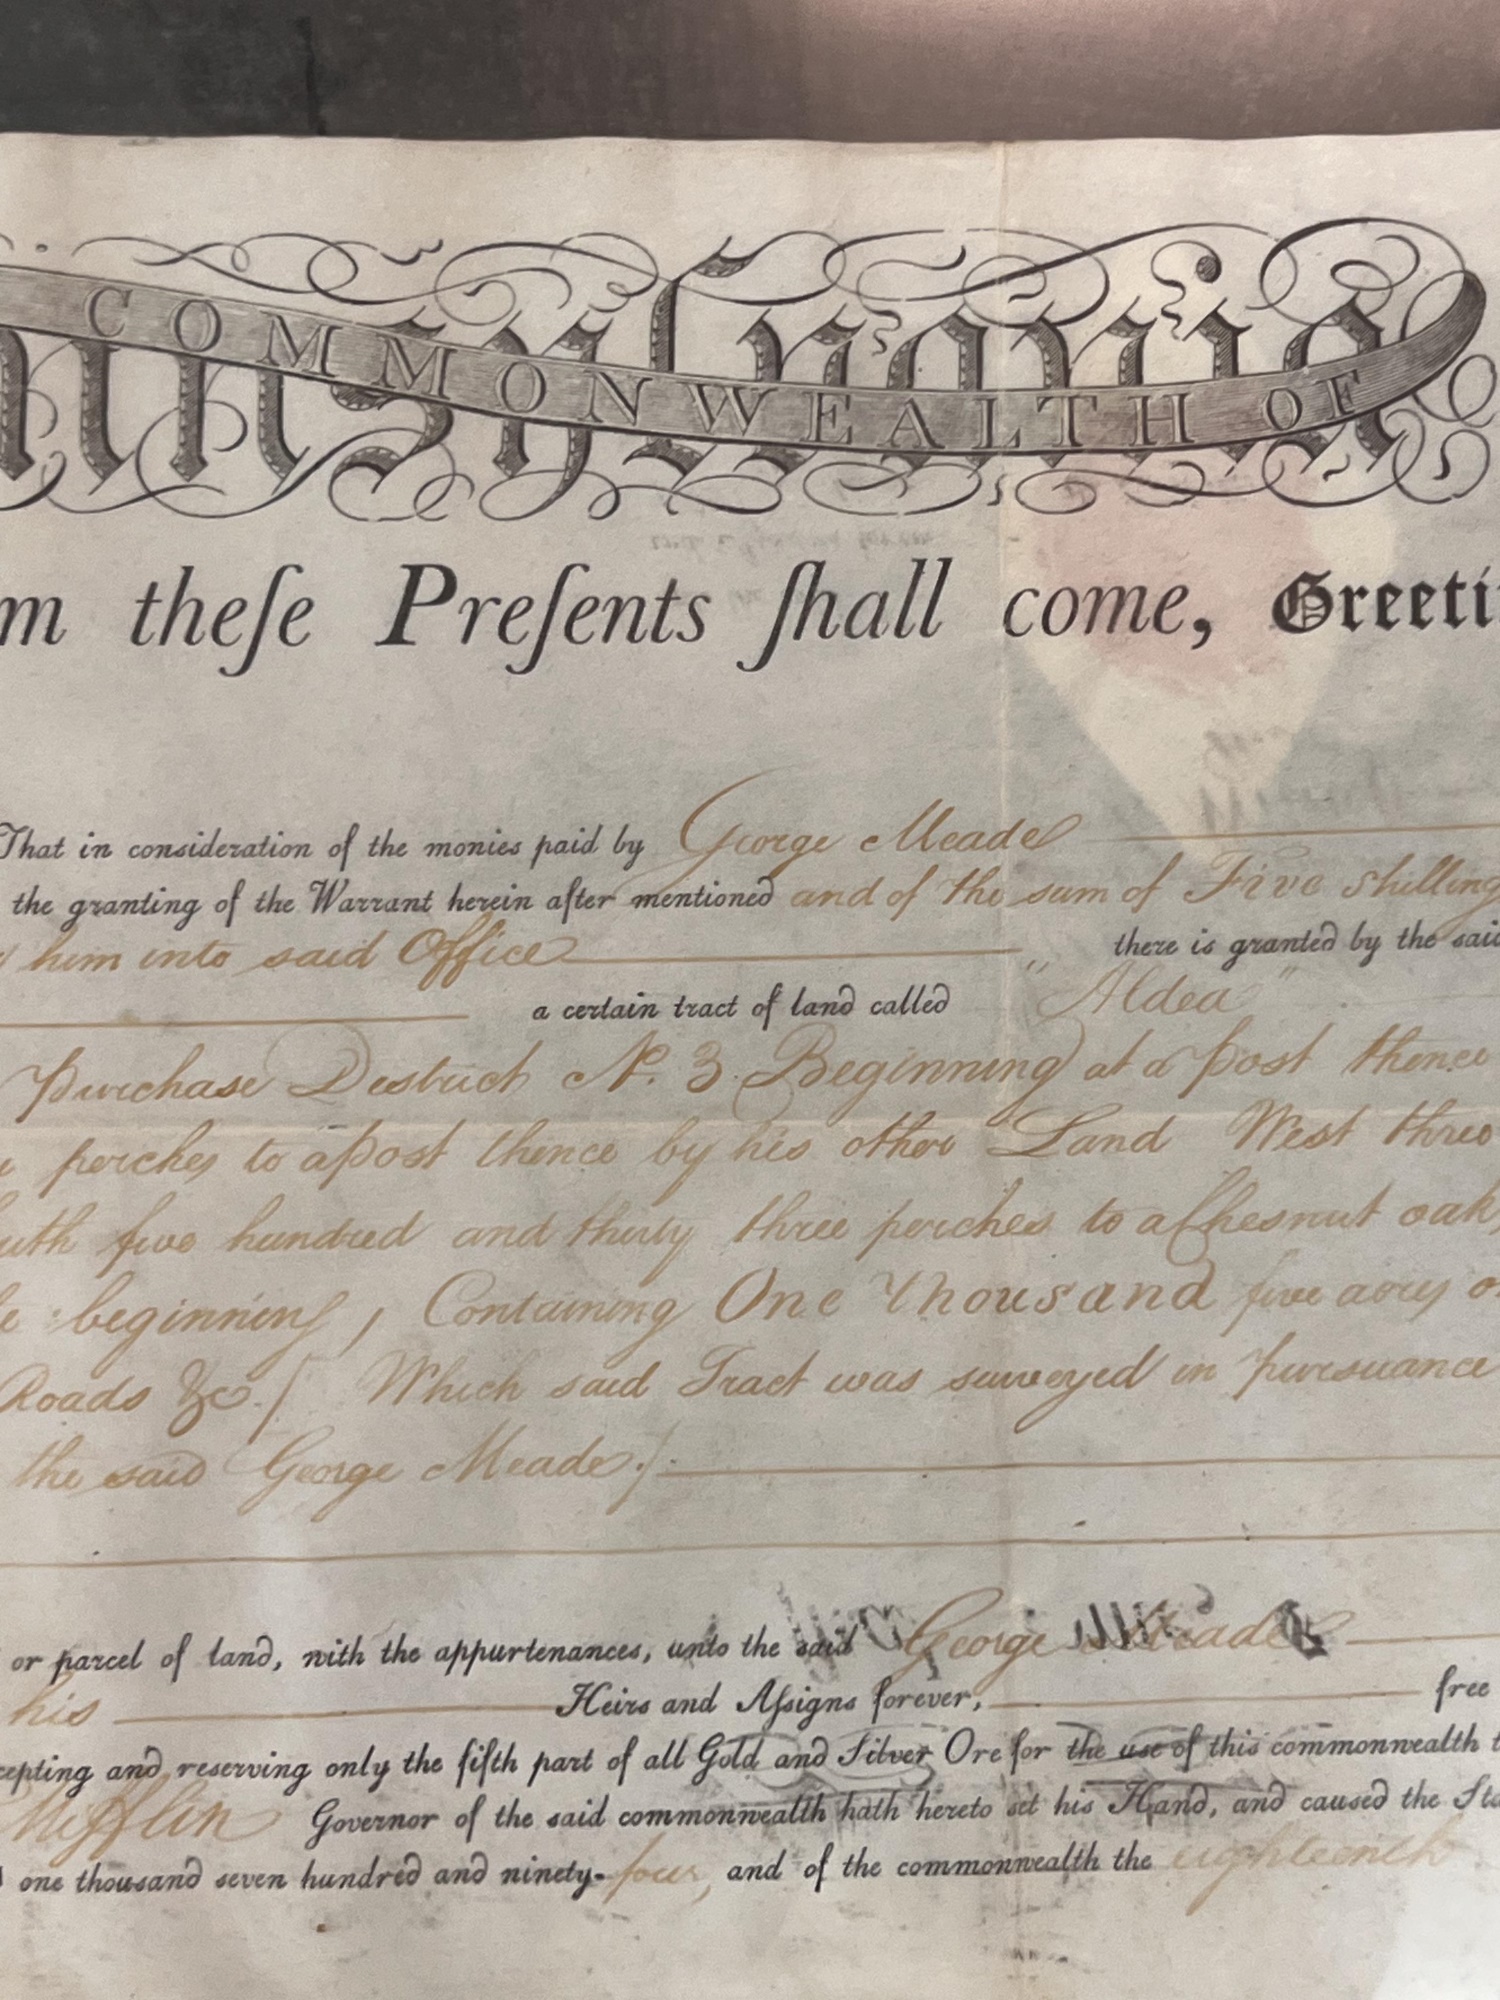 COMMONWEALTH OF
nnsylvania
m theſe Preſents ſhall come, Greeti
That in consideration of the monies paid by George Meade
the granting of the Warrant herein after mentioned and of the sum of Five Shilling
him into said Office there is granted by the said
a certain tract of land called "Aldea"
Purchase District No. 3. Beginning at a post thence
perches to a post thence by his other Land West three
uth five hundred and thirty three perches to a Chesnut oak,
beginning, Containing One Thousand five acres
Roads &c./ Which said Tract was surveyed in pursuance
the said George Meade./.
or parcel of land, with the appurtenances, unto the said George Meade
his Heirs and Aſsigns forever, free
cepting and reserving only the fifth part of all Gold and Silver Ore for the use of this commonwealth t
Mifflin Governor of the said commonwealth hath hereto set his Hand, and caused the Sta
one thousand seven hundred and ninety-four, and of the commonwealth the eighteenth